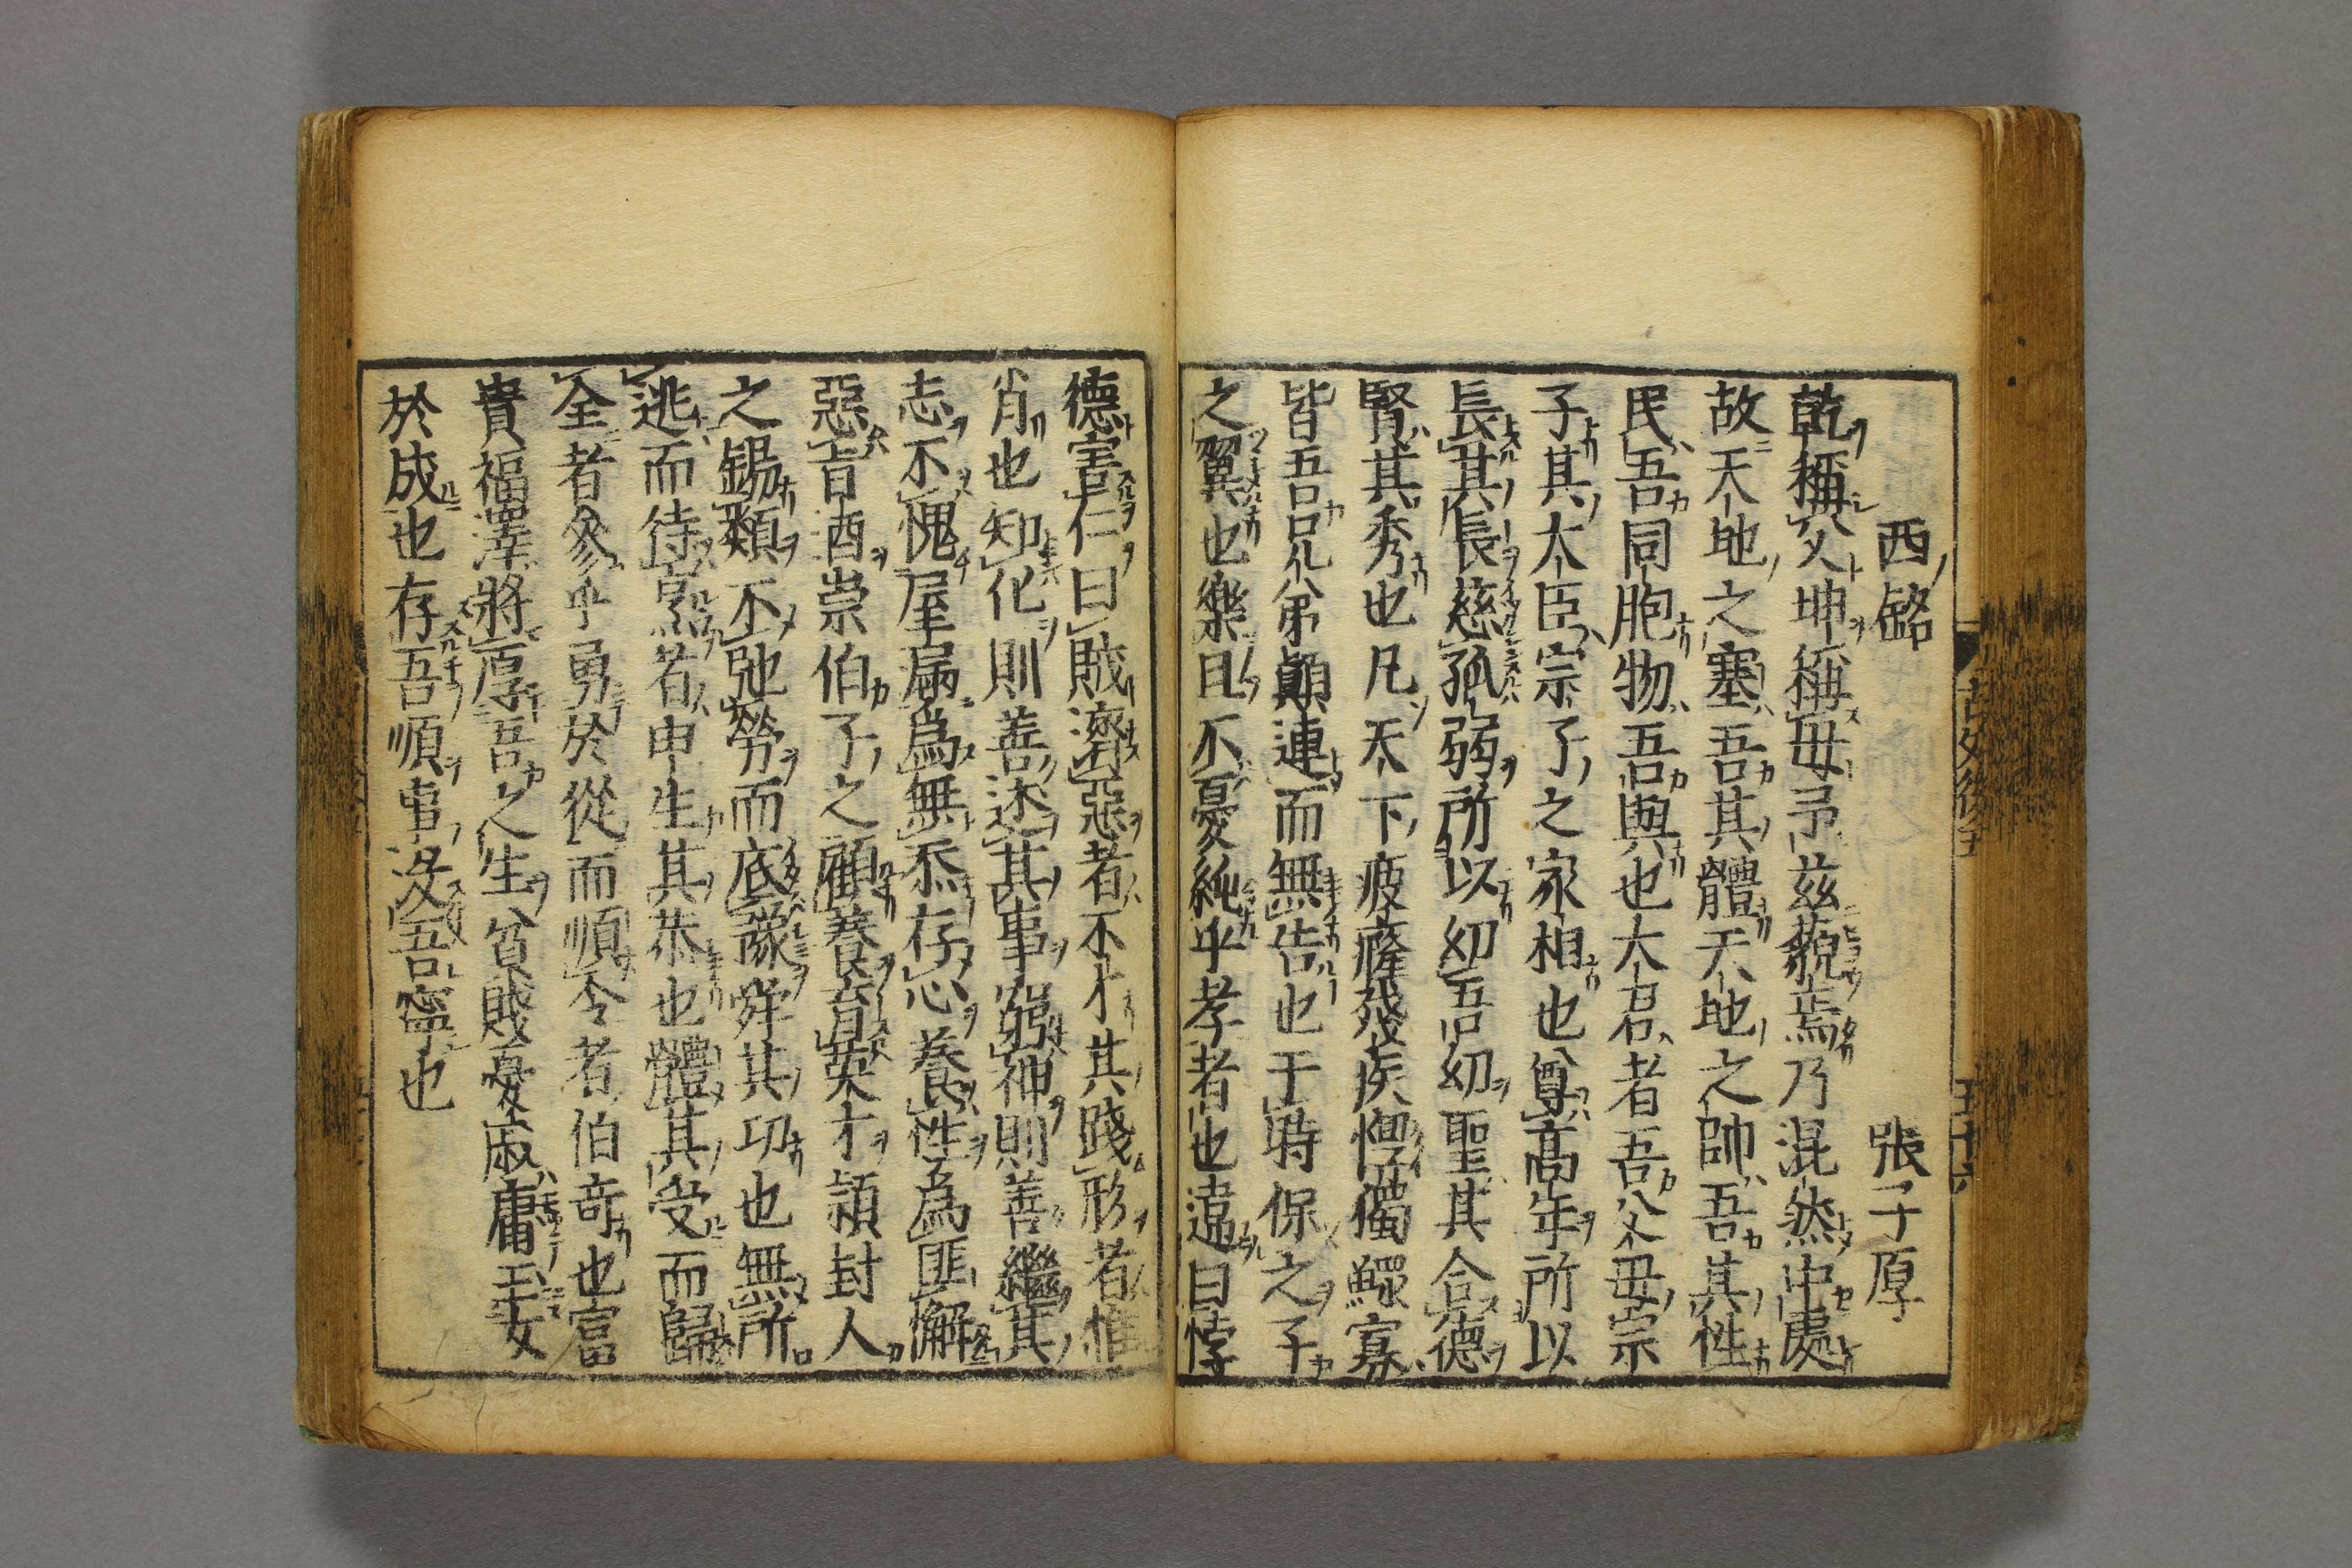 西銘 張子厚
乾稱父坤稱母予茲藐焉乃混然中處
故天地之塞吾其體天地之帥吾其性
民吾同胞物吾與也大君者吾父母宗
子其大臣宗子之家相也尊高年所以
長其長慈孤弱所以幼吾幼聖其合德
賢其秀也凡天下疲癃殘疾惸獨鰥寡
皆吾兄弟顛連而無告也于時保之子
之翼也樂且不憂純乎孝者也違曰悖
德害仁曰賊濟惡者不才其踐形者惟
肖也知化則善述其事窮神則善繼其
志不愧屋漏為無忝存心養性為匪懈
惡旨酒崇伯子之顧養育英才頴封人
之錫類不弛勞而底豫舜其功也無所
逃而待烹者申生其恭也體其受而歸
全者參乎勇於從而順令者伯奇也富
貴福澤將厚吾之生貧賤憂戚庸玉女
於成也存吾順事沒吾寧也
古文後集